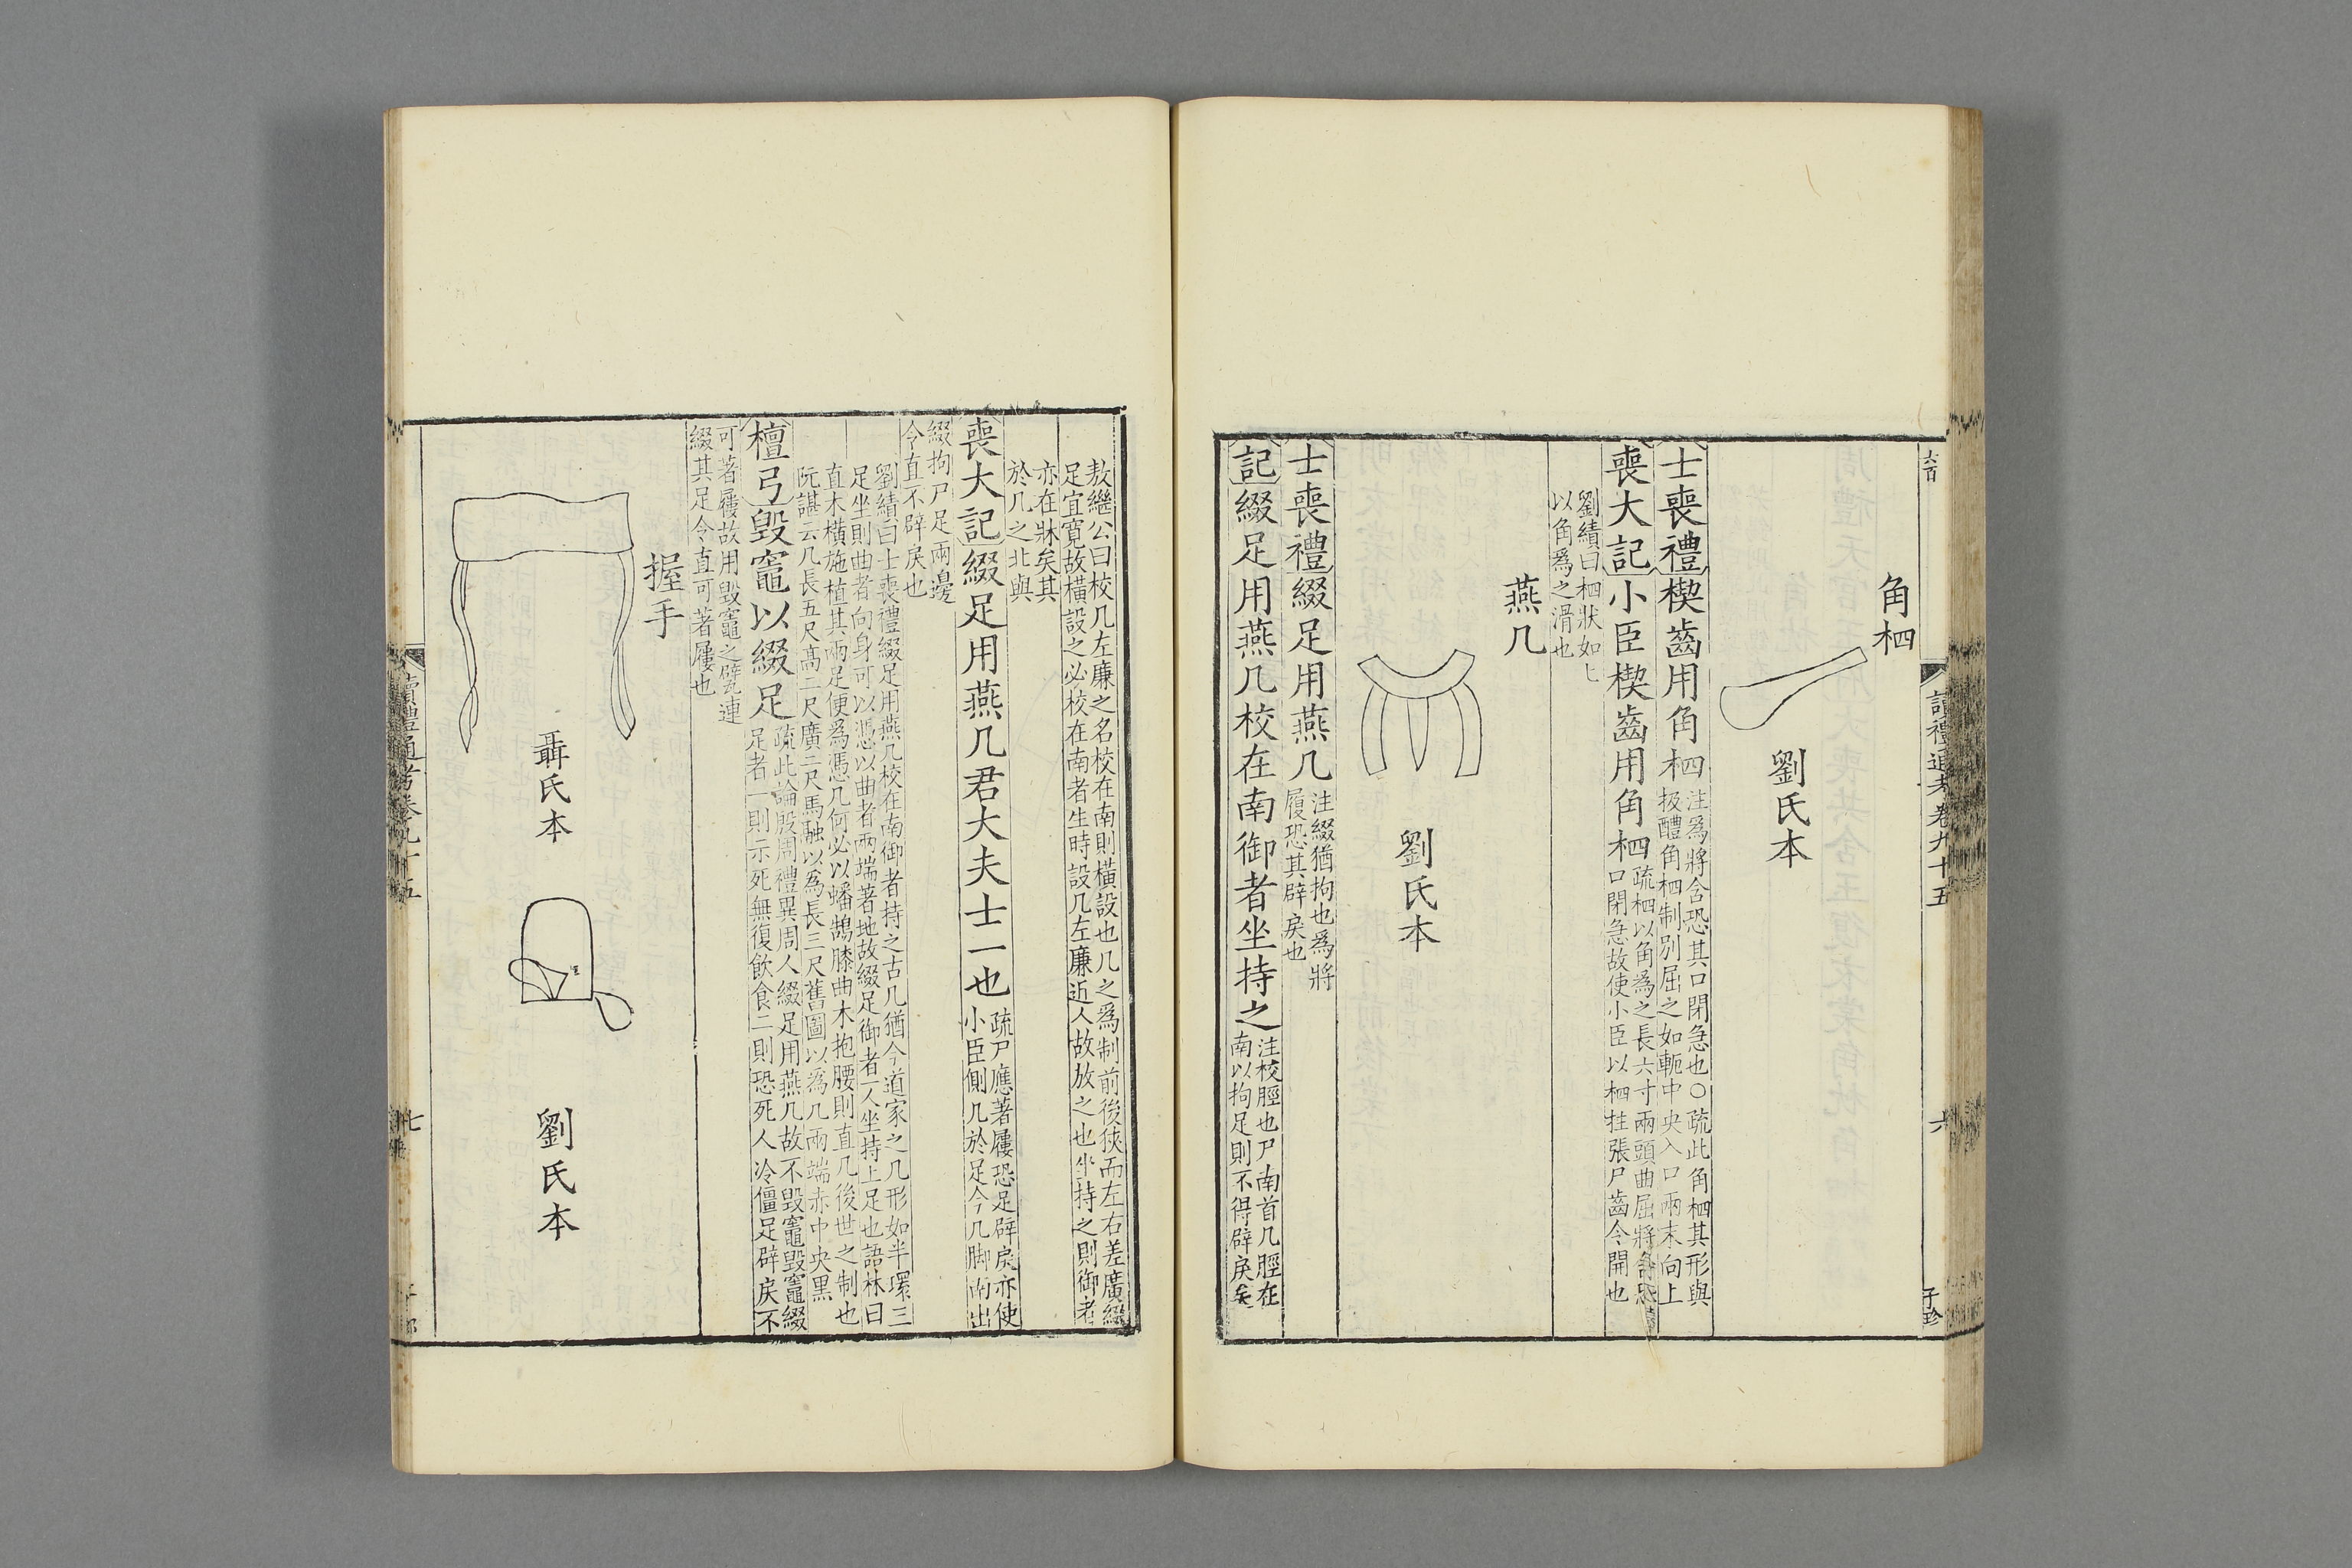 六百
讀禮通考卷九十五
六
子珍
角柶
劉氏本
士喪禮楔齒用角柶
注爲將含恐其口閉急也○疏此角柶其形與
扱醴角柶制別屈之如軛中央入口兩末向上
喪大記小臣楔齒用角柶
疏柶以角爲之長六寸兩頭曲屈將含恐
口閉急故使小臣以柶拄張尸齒令開也
劉績曰柶狀如匕
以角爲之滑也
燕几
劉氏本
士喪禮綴足用燕几
注綴猶拘也爲將
履恐其辟戾也
記綴足用燕几校在南御者坐持之
注校脛也尸南首几脛在
南以拘足則不得辟戾矣
敖繼公曰校几左廉之名校在南則橫設也几之爲制前後狹而左右差廣綴
足宜寬故橫設之必校在南者生時設几左廉近人故放之也坐持之則御者
亦在牀矣其
於几之北與
喪大記綴足用燕几君大夫士一也
疏尸應著屨恐足辟戾亦使
小臣側几於足令几脚南出
綴拘尸足兩邊
令直不辟戾也
劉績曰士喪禮綴足用燕几校在南御者持之古几猶今道家之几形如半環三
足坐則曲者向身可以憑以曲者兩端著地故綴足御者一人坐持上足也語林曰
直木橫施植其兩足便爲憑几何必以蟠鵠膝曲木抱腰則直几後世之制也
阮諶云几長五尺高二尺廣二尺馬融以爲長三尺舊圖以爲几兩端赤中央黑
檀弓毀竈以綴足
疏此論殷周禮異周人綴足用燕几故不毀竈毀竈綴
足者一則示死無復飲食二則恐死人冷僵足辟戾不
可著屨故用毀竈之甓連
綴其足令直可著屨也
握手
聶氏本
劉氏本
讀禮通考卷九十五
七